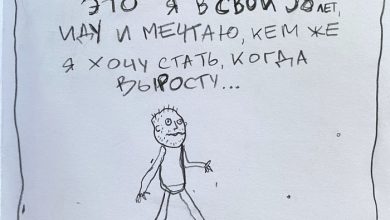 ЭТО Я В СВОИ ЛЕТ,
ИДУ И МЕЧТАЮ, КЕМ ЖЕ
Я ХОЧУ СТАТЬ, КОГДА
ВЫРОСТУ...